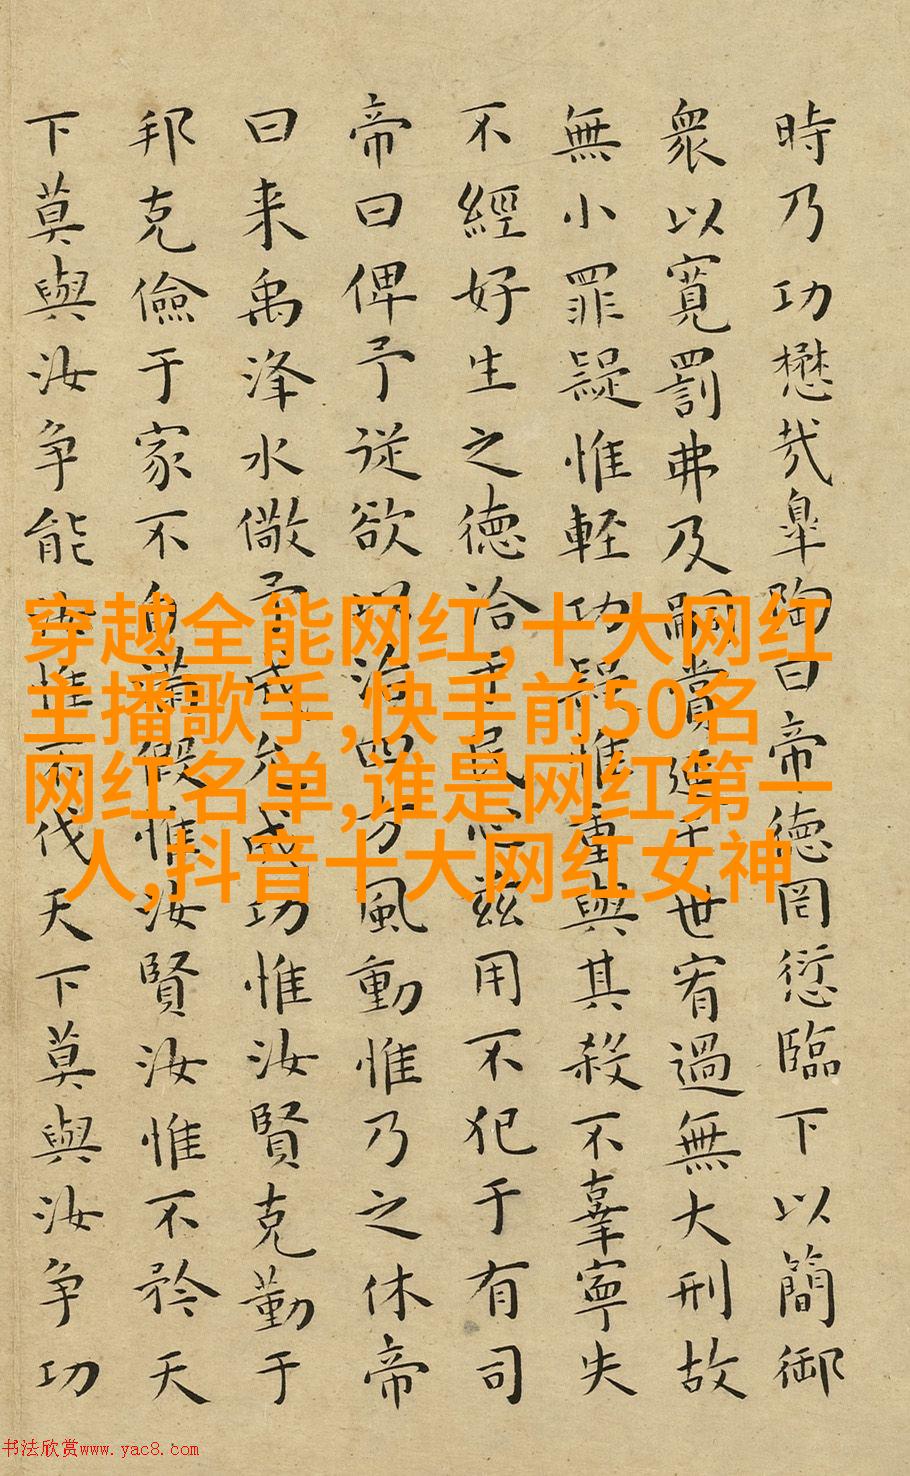 時乃功懋哉臯陶曰帝德罔愆臨下以簡御
衆以寬罰弗及嗣賞延于世宥過無大刑故
無小罪疑惟輕功疑惟重與其殺不辜寧失
不經好生之德洽于民心茲用不犯于有司
帝曰俾予従欲以治四方風動惟乃之休帝
曰来禹洚水儆予成允成功惟汝賢克勤于
邦克儉于家不自滿假惟汝賢汝惟不矜天
下莫與汝争能汝惟不伐天下莫與汝争功
穿越全能网红,十大网红
主播歌手,快手前50名
网红名单,谁是网红第一
人,抖音十大网红女神
书法欣赏www.yac8.com